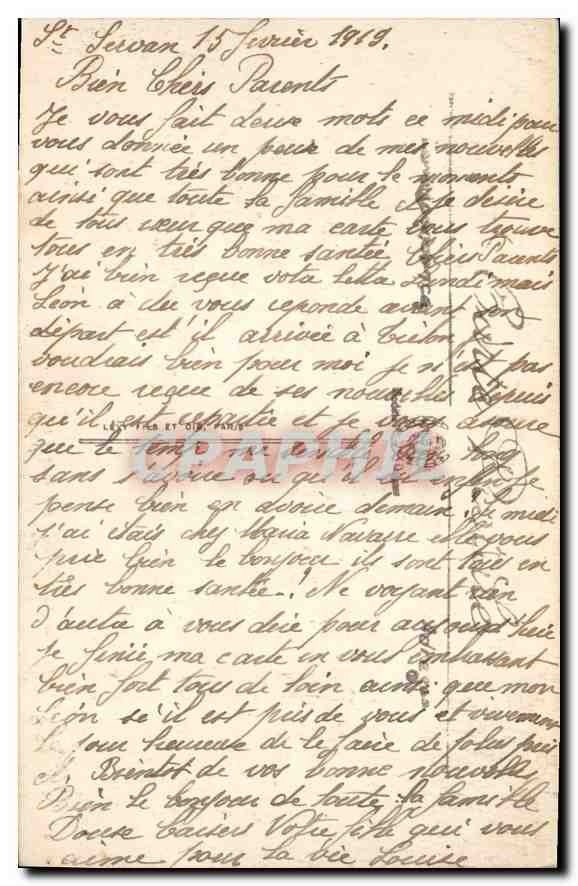 St Servan 15 fevrier 1919.
Bien Chers Parents
Je vous fait deux mots ce midi pour
vous donnée un peux de mes nouvelles
qui sont très bonne pour le moments
ainsi que toute la famille je désire
de tous cœur que ma carte vous trouve
tous en très bonne santée, Chers Parents
J'ai bien reçue vota letta Lundi mais
Léon à du vous reponde avant son
départ est'il arrivée à
voudrais bien pour moi je n'ai pas
encore reçue de ses nouvelles depuis
qu'il est repartie et je vous assure
LÉVY FILS ET CIE, PARIS
que le temp me semble bien long
sans savoire ou qu'il est enfin je
pense bien en avoire demain. Ce midi
j'ai étais chez Maria Navarre elle vous
prie bien le bonjour ils sont tous en
très bonne santée. Ne voyant rien
d'auta à vous dire pour
je finie ma carte en vous embrassant
bien fort tous de loin ainsi que mon
Léon sé'il est près de vous et vivement
le jour heureuse de le faire de plus près
Bientot de vos bonne nouvelles
Bien le bonjour de toute la famille
Douse baisers Votre fille qui vous
aime pour la vie Louise
CPAPHIL